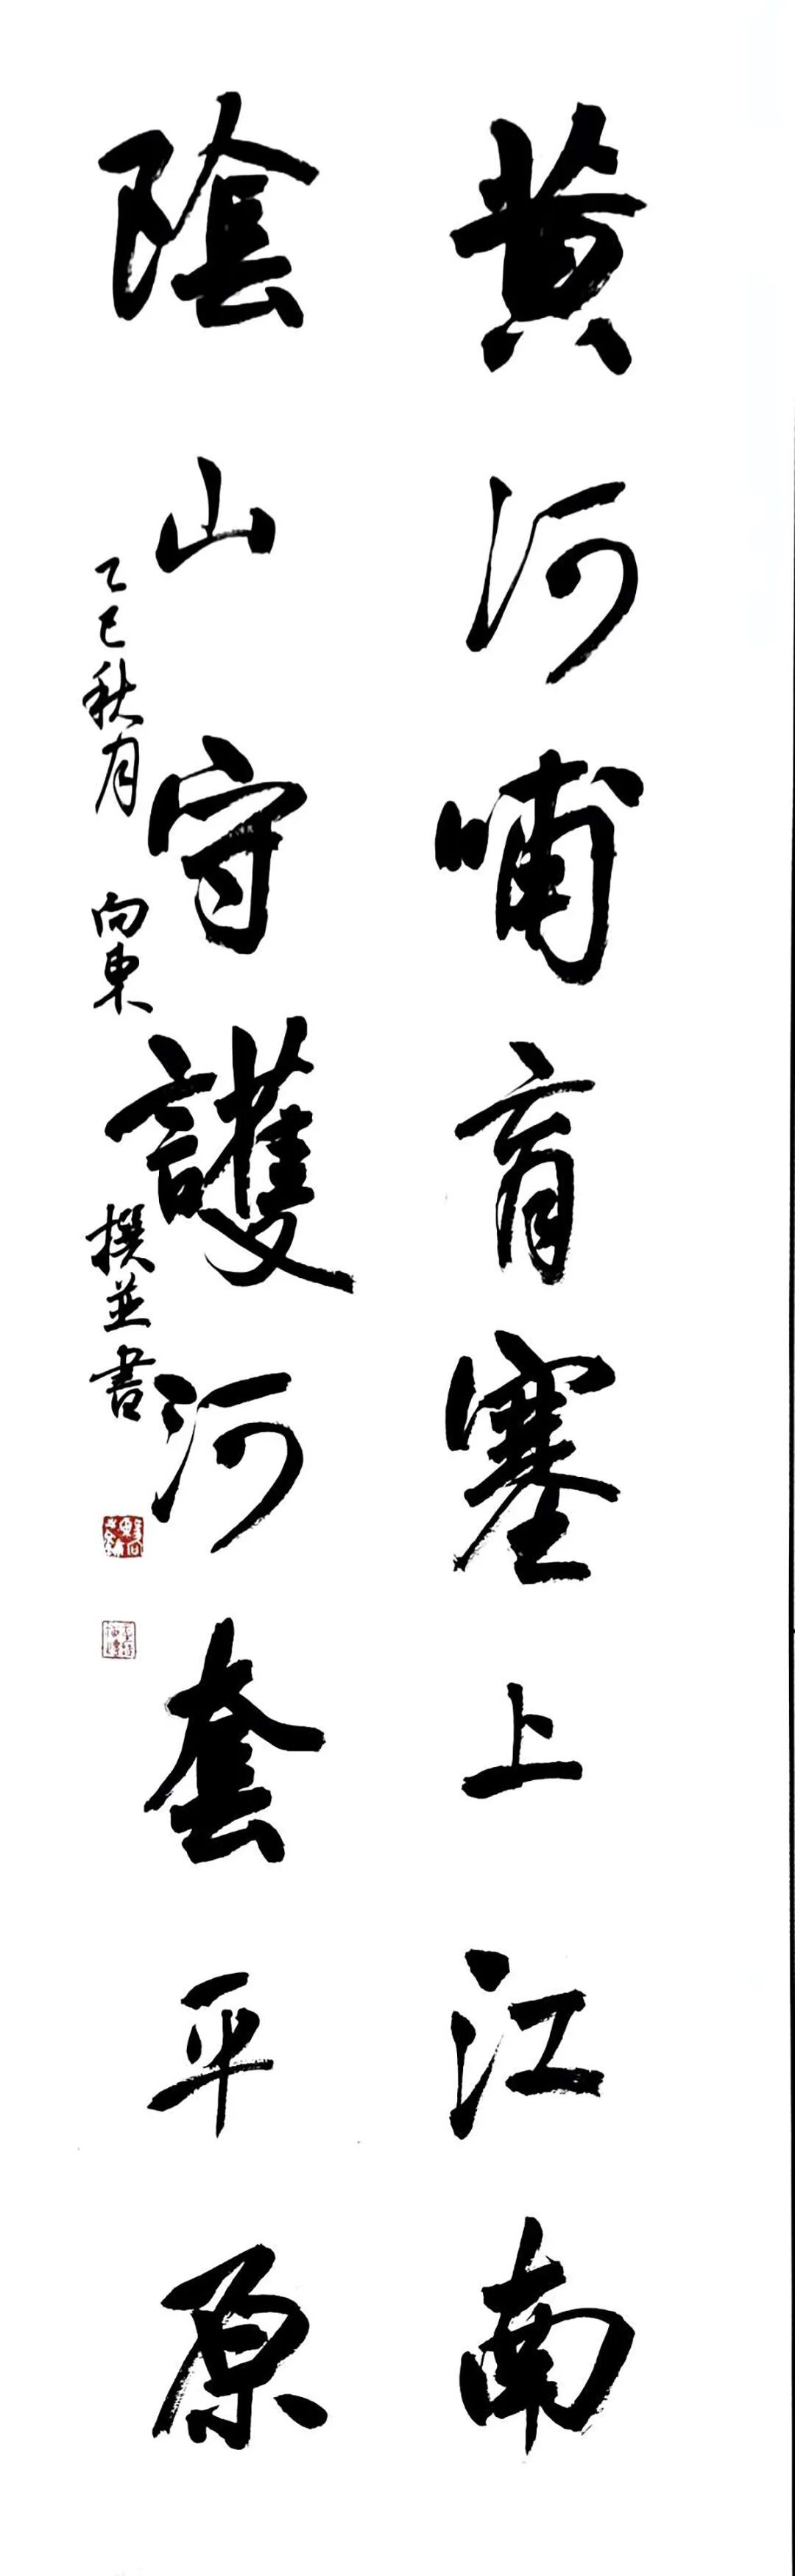 黄河哺育塞上江南
陰山守護河套平原
乙巳秋月 向東 撰並書